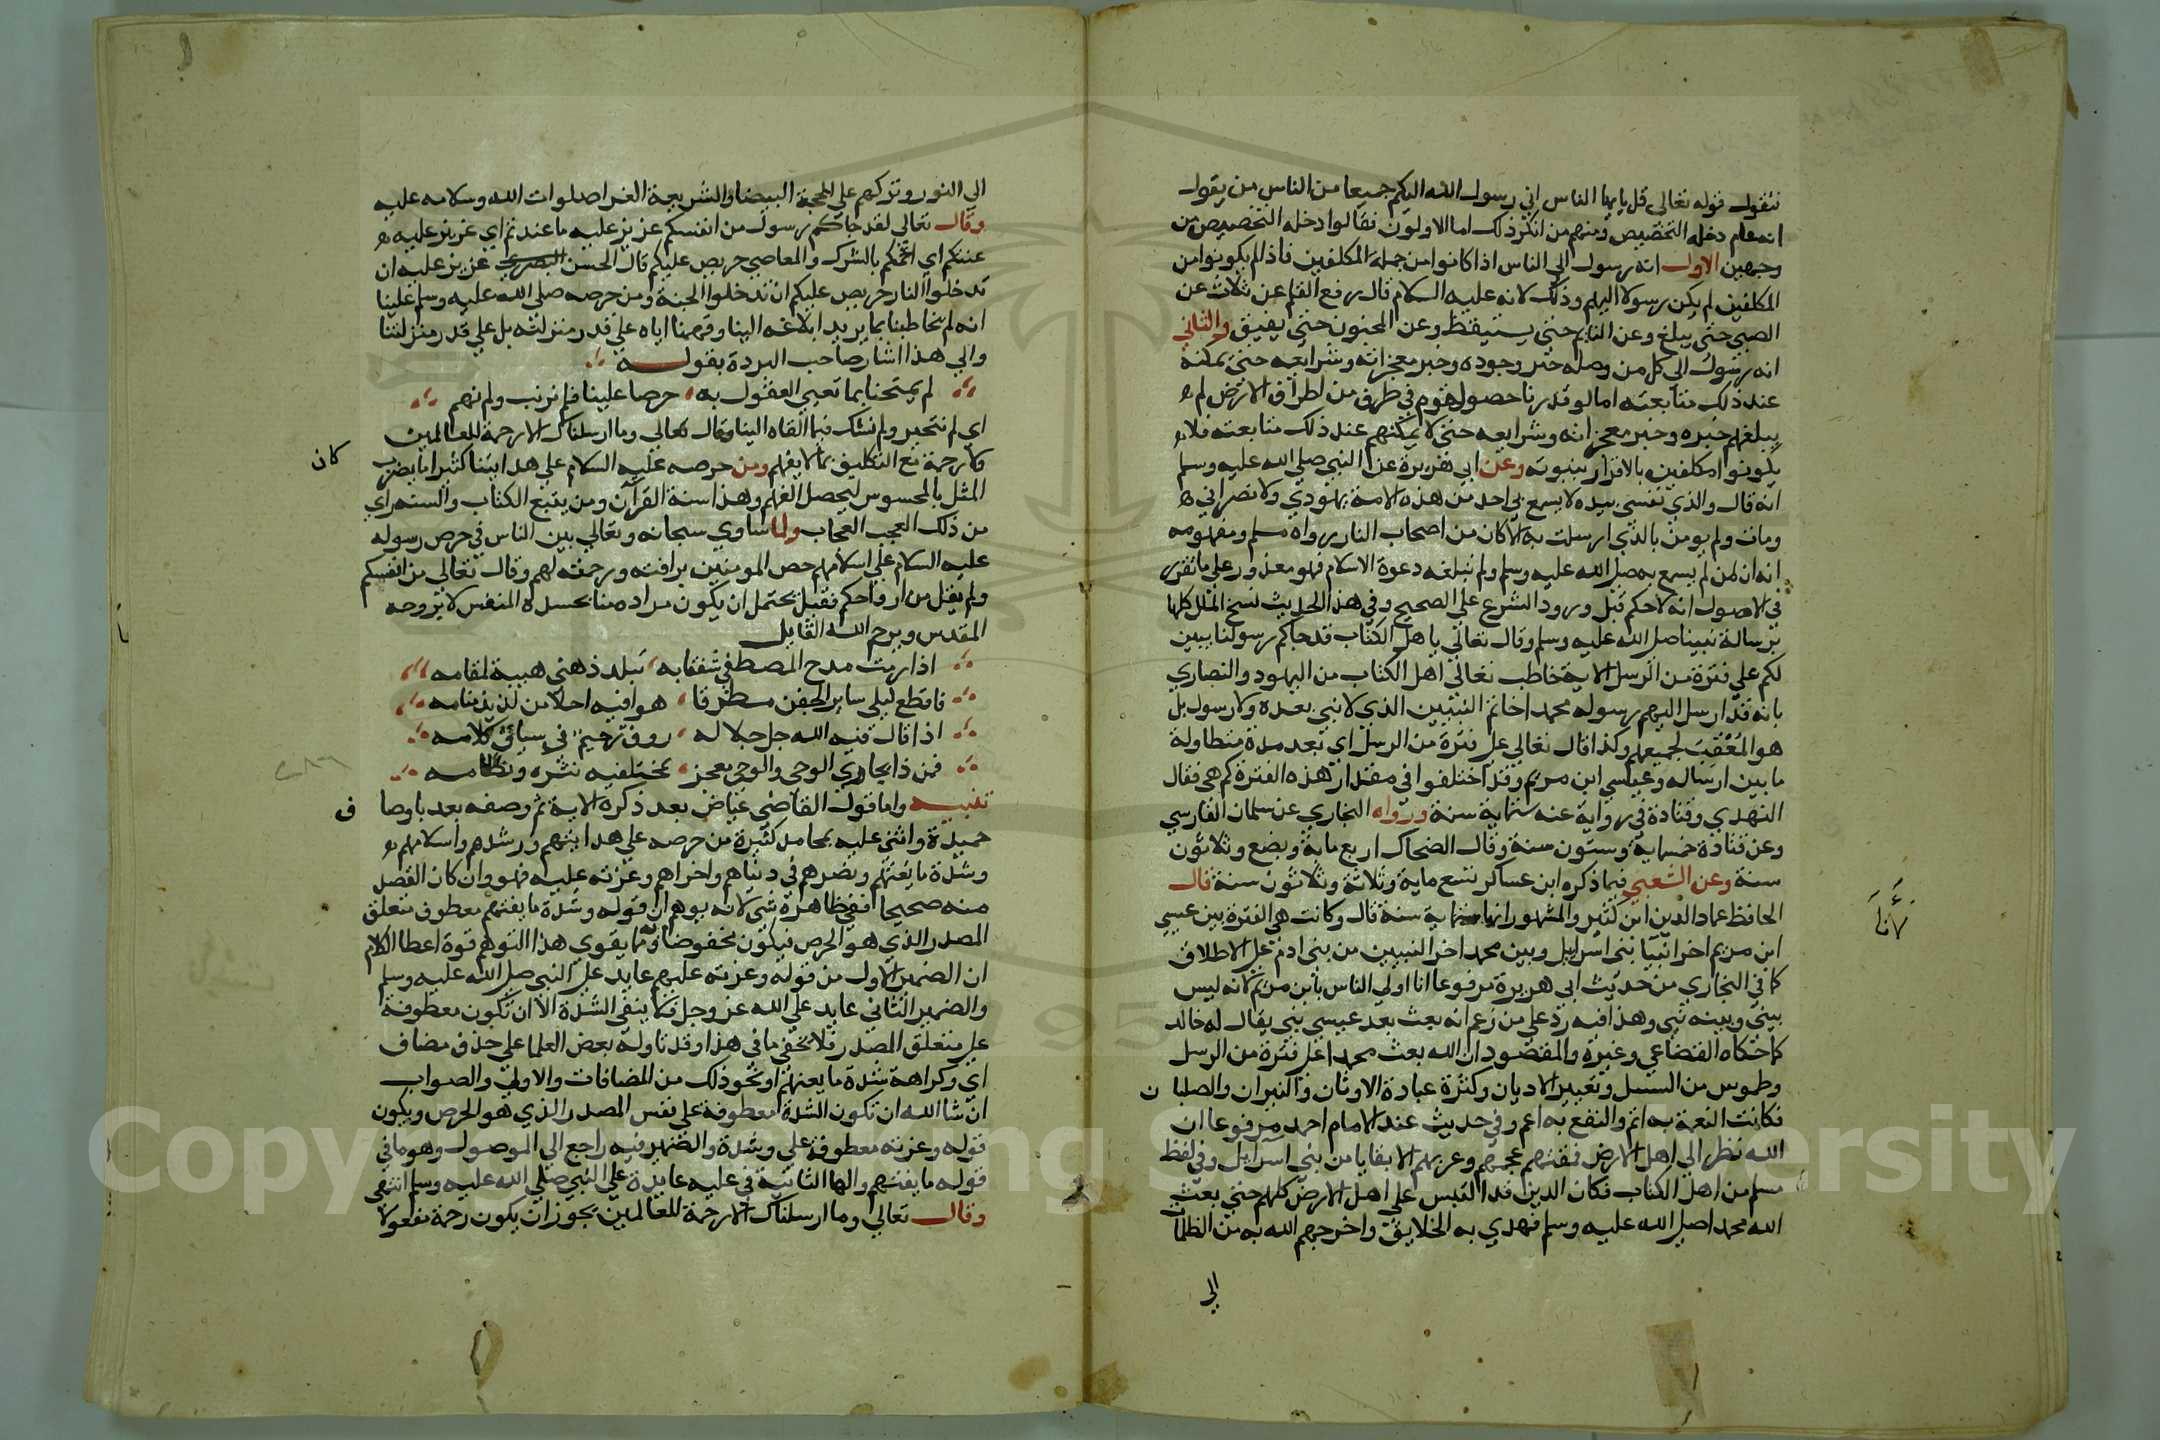 فنقول قوله تعالى قل يا ايها الناس اني رسول الله اليكم جميعا من الناس من يقول
انه عام دخله التخصيص ومنهم من انكر ذلك اما الاولون فقالوا دخله التخصيص من
وجهين الاول انه رسول الي الناس اذا كانوا من جملة المكلفين فاذا لم يكونوا من
المكلفين لم يكن رسولا اليهم وذلك لانه عليه السلام قال رفع القلم عن ثلاث عن
الصبي حتي يبلغ وعن النايم حتي يستيقظ وعن المجنون حتي يفيق والثاني
انه رسول الي كل من وصله خبر وجوده وخبر معجزاته وشرايعه حتي يمكنه
عند ذلك متابعته اما لو قدرنا حصول قوم في طرف من اطراف الارض لم
يبلغهم خبره وخبر معجزاته وشرايعه حتي لا يمكنهم عند ذلك متابعته فلا
يكونوا مكلفين بالاقرار بنبوته وعن ابي هريرة عن النبي صلي الله عليه وسلم
انه قال والذي نفسي بيده لا يسمع بي احد من هذه الامة يهودي ولا نصراني
ومات ولم يومن بالذي ارسلت به الا كان من اصحاب النار رواه مسلم ومفهومه
انه ان لمن لم يسمع به صلي الله عليه وسلم ولم تبلغه دعوة الاسلام فهو معذور علي ما تقرر
في الاصول انه لا حكم قبل ورود الشرع علي الصحيح وفي هذا الحديث نسخ الملل كلها
برسالة نبينا صلي الله عليه وسلم وقال تعالي يا هل الكتاب قد جاكم رسولنا يبين
لكم علي فترة من الرسل الاية خاطب تعالي اهل الكتاب من اليهود والنصاري
بانه قد ارسل اليهم رسوله محمدا خاتم النبيين الذي لا نبي بعده ولا رسول بل
هو المعقب لجميعهم وكذا قال تعالي علي فترة من الرسل اي بعد مدة متطاولة
ما بين ارساله وعيسي ابن مريم وقد اختلفوا في مقدار هذه الفترة كم هي فقال
النهدي وقتادة في رواية عنه ستماية سنة ورواه البخاري عن سلمان الفارسي
وعن قتادة خمسماية وستون سنة وقال الضحاك اربع ماية وبضع وثلاثون
سنة وعن الشعبي فيما ذكره ابن عساكر تسع ماية وثلاثة وثلاثون سنة قال
الحافظ عماد الدين ابن كثير والمشهور انها ستماية سنة قال وكانت هي الفترة بين عيسي
ابن مريم اخر انبيا بني اسرايل وبين محمد اخر النبيين من بني ادم علي الاطلاق
كما في البخاري من حديث ابي هريرة مرفوعا انا اولي الناس بابن مريم لانه ليس
بيني وبينه نبي وهذا فيه رد علي من زعم انه بعث بعد عيسي نبي يقال له خالد
كما حكاه القضاعي وغيره والمقصود ان الله بعث محمدا علي فترة من الرسل
وطموس من السبل وتغيير الاديان وكثرة عبادة الاوثان والنيران والصلبان
فكانت النعمة به اتم والنفع به اعم وفي حديث عند الامام احمد مرفوعا ان
الله نظر الي اهل الارض فمقتهم عجمهم وعربهم الا بقايا من بني اسرايل وفي لفظ
مسلم من اهل الكتاب فكان الدين قد التبس علي اهل الارض كلهم حتي بعث
الله محمدا صلي الله عليه وسلم فهدي به الخلايق واخرجهم الله به من الظلمات
الي
الي النور وتركهم علي المحجة البيضا والشريعة الغرا صلوات الله وسلامه عليه
وقال تعالي لقد جاكم رسول من انفسكم عزيز عليه ما عنتم اي عزيز عليه
عنتكم اي اثمكم بالشرك والمعاصي حريص عليكم قال الحسن البصري عزيز عليه ان
تدخلوا النار حريص عليكم ان تدخلوا الجنة ومن حرصه صلي الله عليه وسلم علينا
انه لم يخاطبنا بما يريد ابلاغه الينا وفهمنا اياه علي قدر منزلته بل علي قدر منزلتنا
والي هذا اشار صاحب البردة بقوله
لم يمتحنا بما تعيي العقول به حرصا علينا فلم نرتب ولم نهم
اي لم نتحير ولم نشك فيما القاه الينا وقال تعالي وما ارسلناك الا رحمة للعالمين
ولا رحمة مع التكليف بما لا يفهم ومن حرصه عليه السلام علي هدايتنا كثيرا ما يضرب
كان
المثل بالمحسوس ليحصل الفهم وهذا سنة القرآن ومن يتبع الكتاب والسنه راي
من ذلك العجب العجاب ولما ساوي سبحانه وتعالي بين الناس في حرص رسوله
عليه السلام علي اسلامهم خص المومنين برافته ورحمته لهم وقال تعالي من انفسكم
ولم يقل من ارواحكم فقيل يحتمل ان يكون مراده منا بجسده المنفس لا بروحه
المقدس ويرحم الله القايل
اذا رمت مدح المصطفي شغفا به تبلد ذهني هيبة لمقامه
فاقطع ليلي ساهر الجفن مطرقا هوا فيه احلا من لذيذ منامه
اذا قال فيه الله جل جلاله رووف رحيم في سياق كلامه
فمن ذا يجاري الوحي والوحي معجز بمختلفيه نثره ونظامه
تنبيه واما قول القاضي عياض بعد ذكره الاية ثم وصفه بعد باوصاف
حميدة واثني عليه بمحامد كثيرة من حرصه علي هدايتهم ورشدهم واسلامهم
وشدة ما يعنتهم ويضرهم في دنياهم واخراهم وعزته عليه فهو وان كان القصد
منه صحيحا ففي ظاهره شي لانه يوهم ان قوله وشدة ما يعنتهم معطوف متعلق
المصدر الذي هو الحرص فيكون مخفوضا وما يقوي هذا التوهم قوة اعطا الكلام
ان الضمير الاول من قوله وعزته عليهم عايد علي النبي صلي الله عليه وسلم
والضمير الثاني عايد علي الله عز وجل فلا ينفي الشدة الا ان تكون معطوفة
علي متعلق المصدر فلا يخفي ما في هذا وقد تاوله بعض العلما علي حذف مضاف
اي وكراهة شدة ما يعنتهم او نحو ذلك من المضافات والاولي والصواب
ان شا الله ان تكون الشدة معطوفة علي نفس المصدر الذي هو الحرص ويكون
قوله وعزته معطوفة علي وشدة والضمير فيه راجع الي الموصول وهو ما في
قوله ما يعنتهم والها الثانية في عليه عايدة علي النبي صلي الله عليه وسلم انتهي
وقال تعالي وما ارسلناك الا رحمة للعالمين يجوز ان يكون رحمة مفعولا